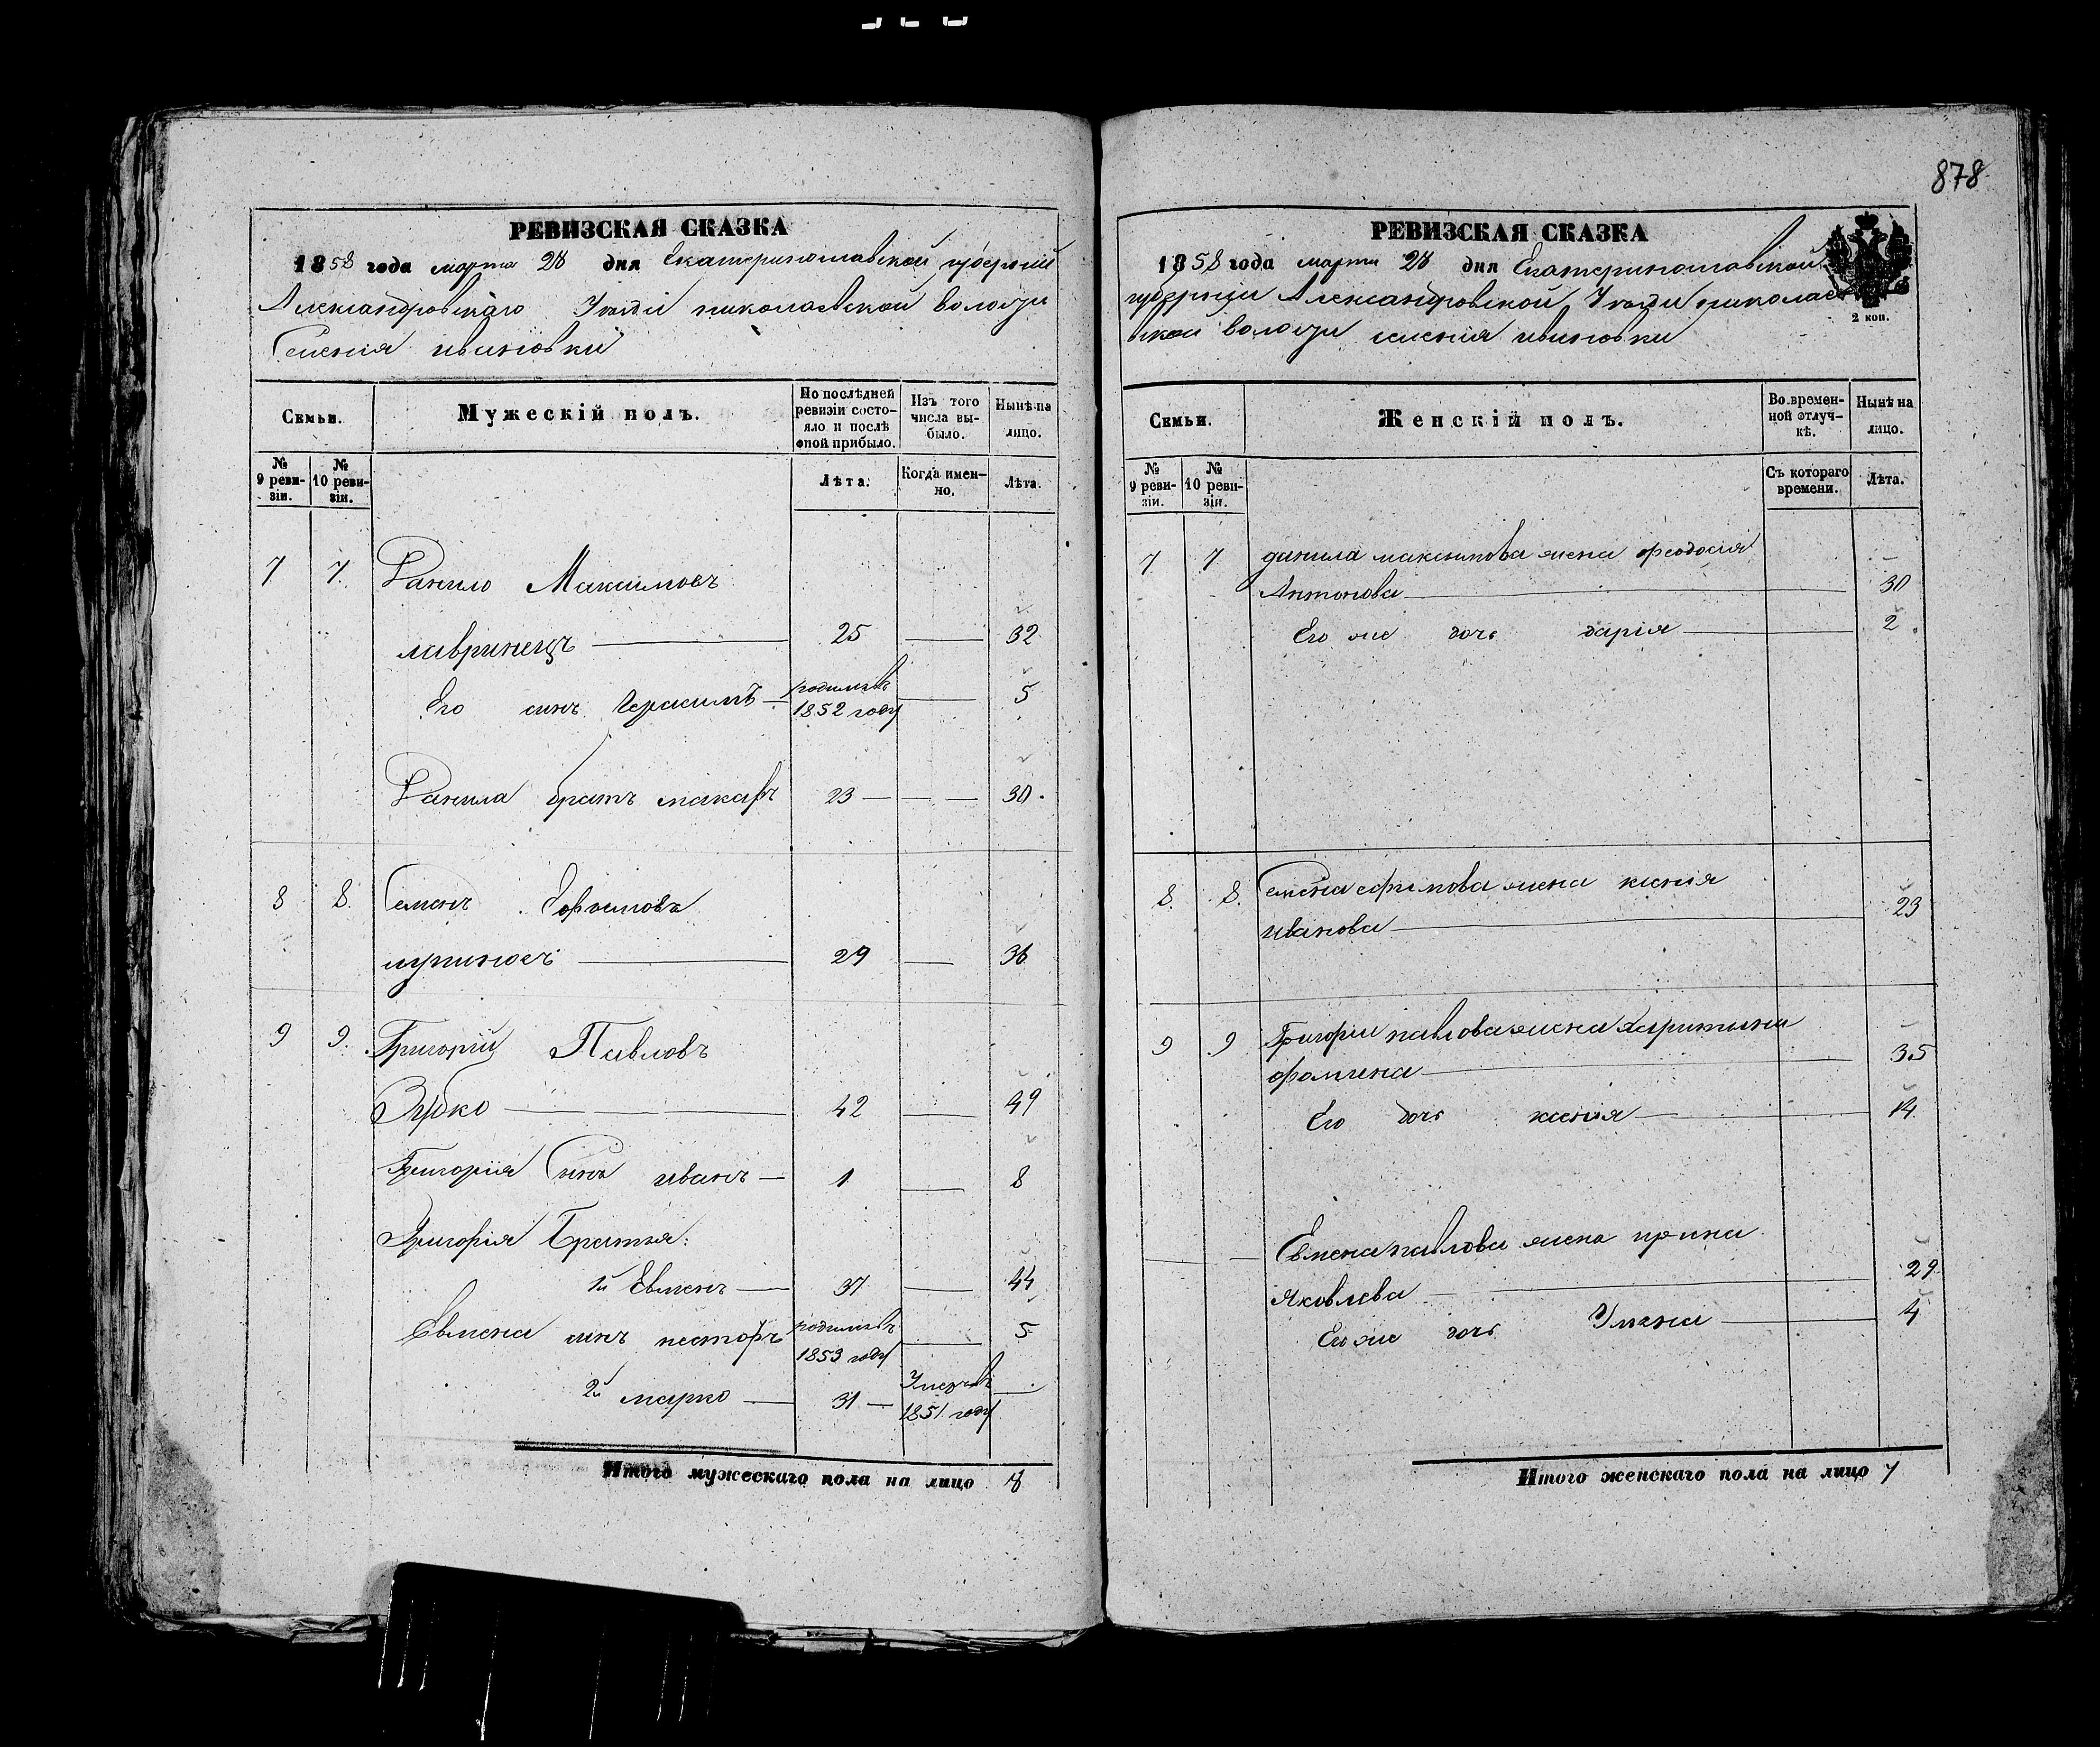 878
РЕВИЗСКАЯ СКАЗКА
1858 года марта 28 дня Екатеринославской губернии
Александровскаго Уезди николаевской волости
Имения ивановки
Семьи.
Мужескій полъ.
По послѣдней ревизіи состо-
яло и послѣ
оной прибыло.
Изъ того
числа вы-
было.
Нынѣ на
лицо.
№
9 реви-
зіи.
№
10 реви-
зіи.
Лѣта.
Когда имен-
но.
Лѣта.
7 7. Данило Максимовъ
лавринецъ 25 32
Его синъ Герасимъ родился 1852 году 5
Данила братъ макаръ 23 30.
8 8. Семенъ Ефимовъ
29 36
9 9. Григорій Павловъ
Зубко 42 49
Григорія Синъ иванъ 1 8
Григорія Братья:
1й Евменъ 37 44
Евмена синъ несторъ родился 1853 году 5
2й марко 31 Умеръ 1851 году
Итого мужескаго пола на лицо 8
РЕВИЗСКАЯ СКАЗКА
1858 года марта 28 дня Екатеринославской
губернии Александровской Уезди николае
вской волости имения ивановки
2 коп.
Семьи.
Женскій полъ.
Во времен-
ной отлуч-
кѣ.
Нынѣ на
лицо.
№
9 реви-
зіи.
№
10 реви-
зіи.
Съ котораго
времени.
Лѣта.
7 7 данила максимова жена феодосия
Антонова 30
Его же дочь дарія 2
8. 8. Семена ефимова жена ксенія
иванова 23
9 9 Григории павлова жена Харитина
фомина 35
Его дочь ксенія 14
Евмена павлова жена ирина
Яковлева 29
Его же дочь Уляна 4
Итого женскаго пола на лицо 7